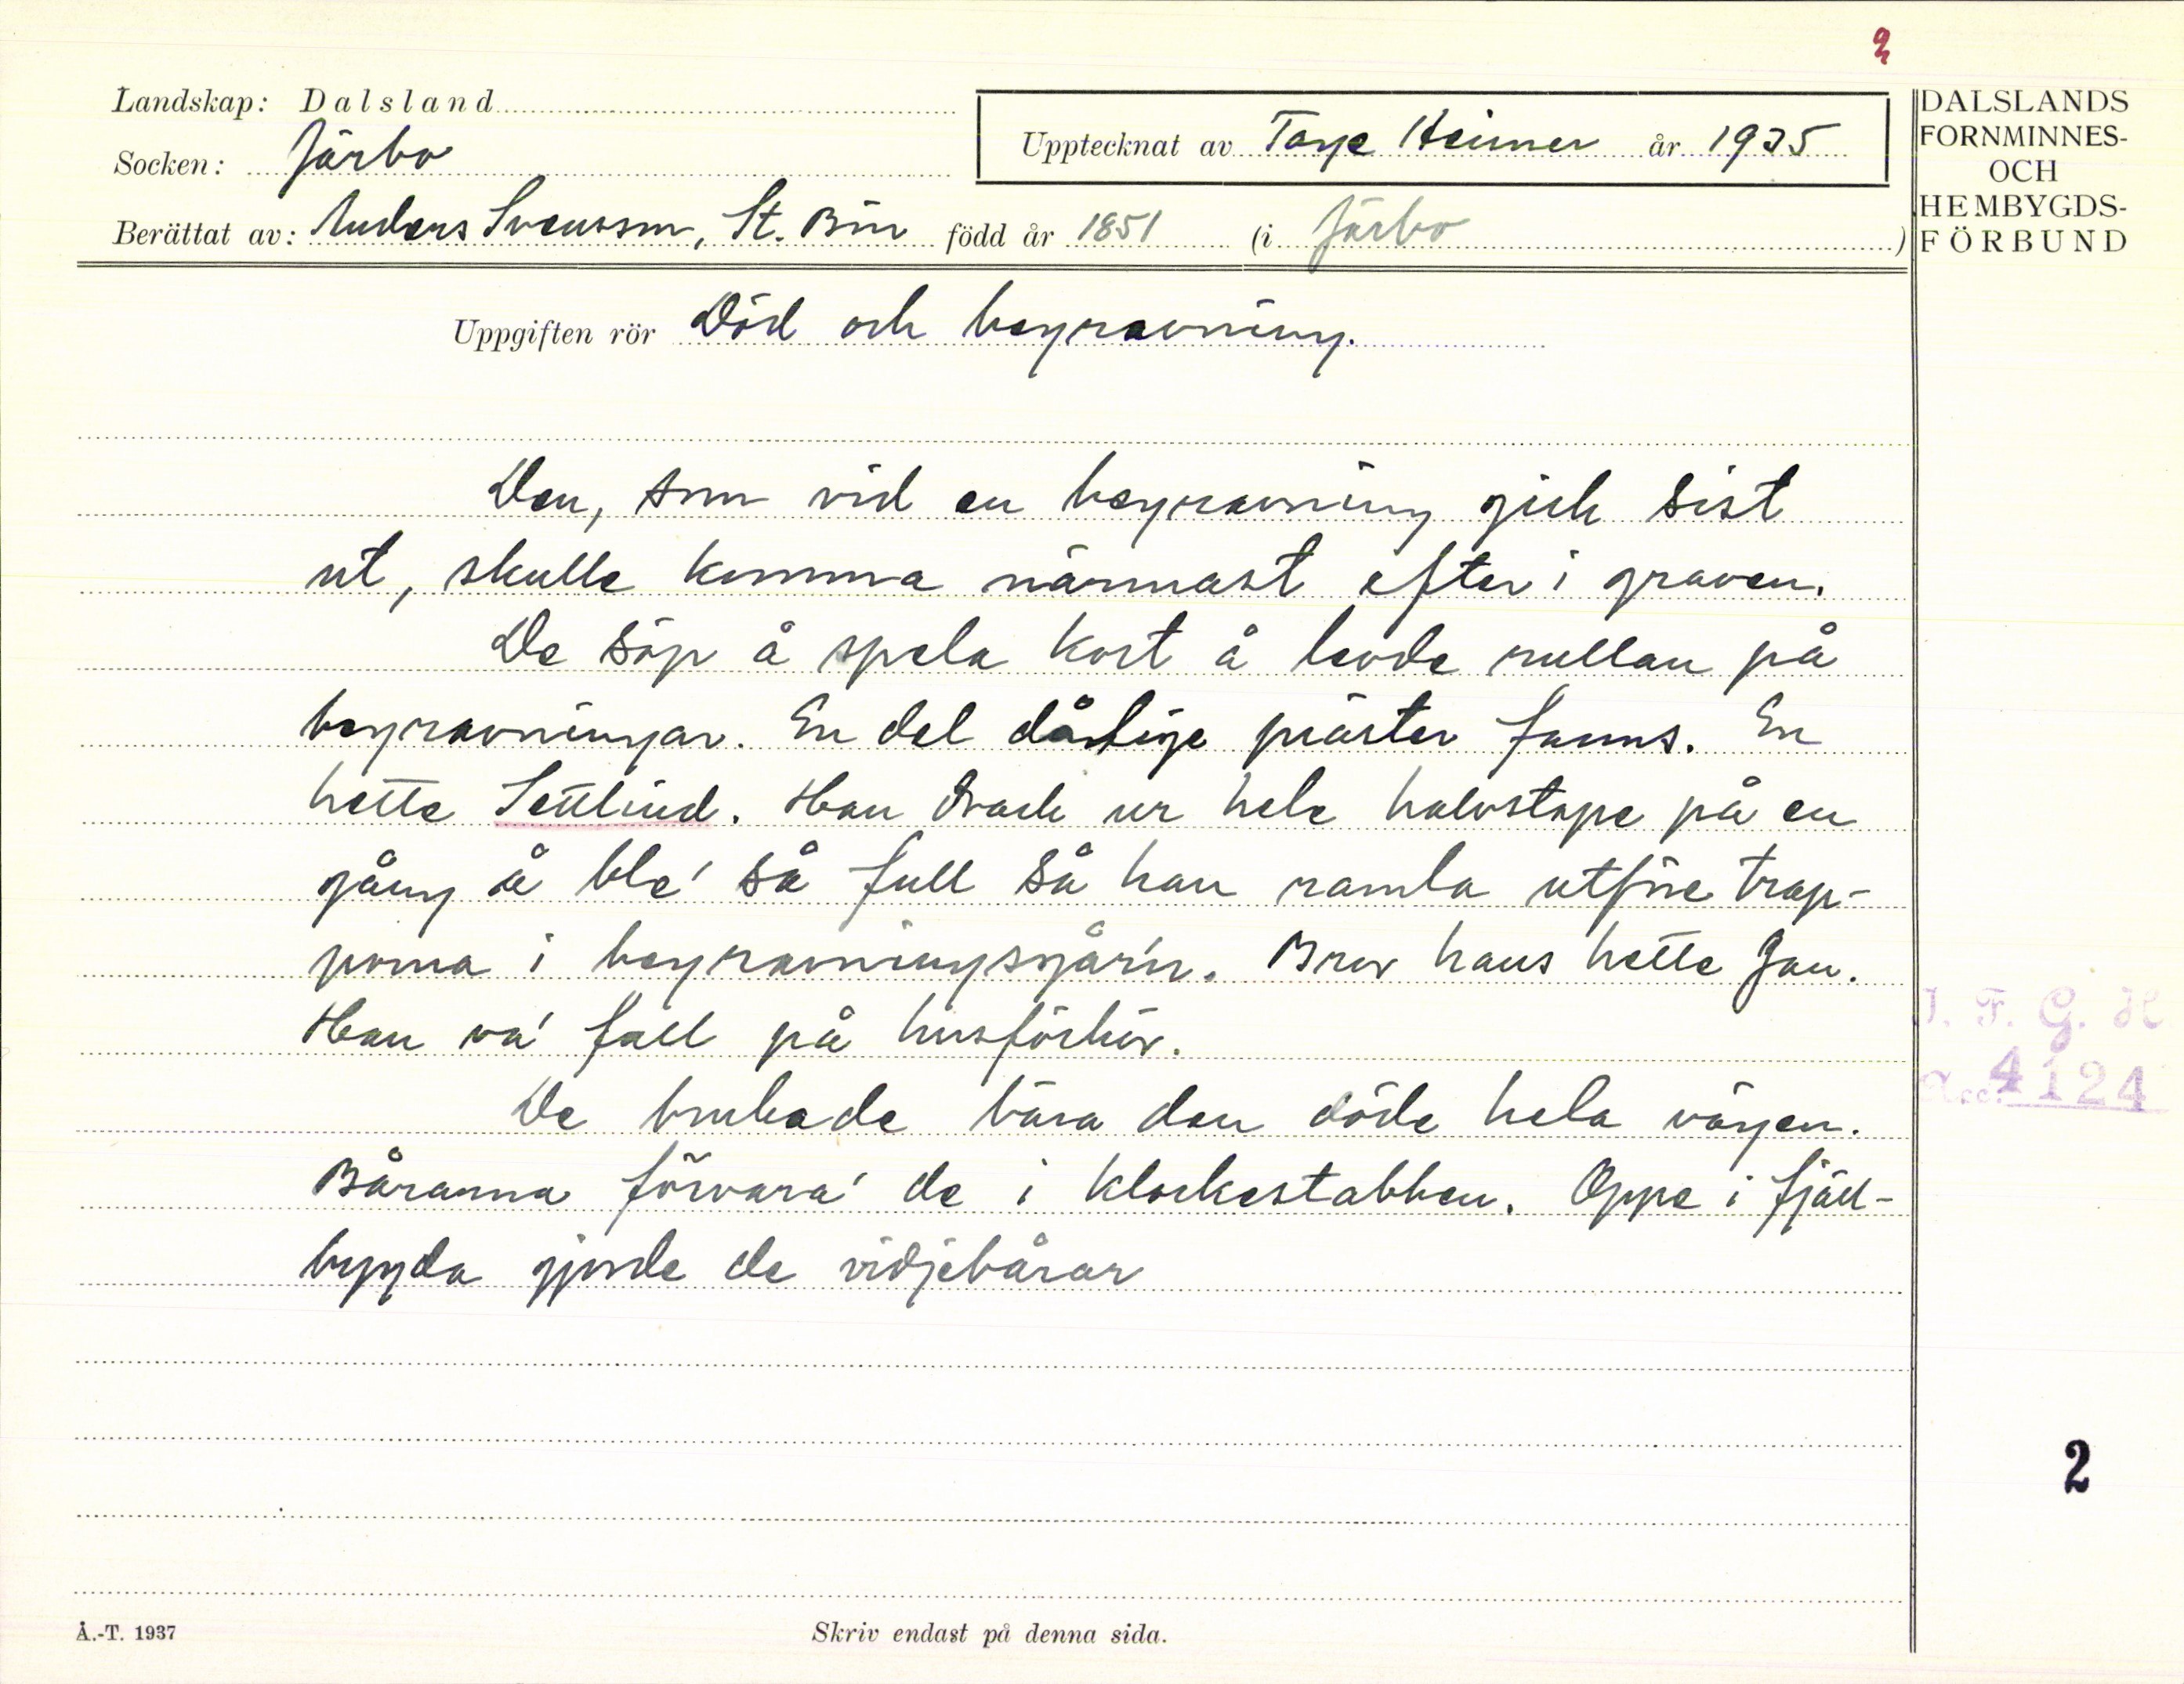 2
Landskap: Dalsland
Socken: Järbo
Upptecknat av Tage Heimer år 1935
Berättat av: Anders Svensson, St. Bön född år 1851 (i Järbo)
DALSLANDS
FORNMINNES-
OCH
HEMBYGDS-
FÖRBUND
Uppgiften rör Död och begravning.
Den, som vid en begravning gick sist
ut, skulle komma närmast efter i graven.
De söp å spela kort å levde rullan på
begravningar. En del dåhlige präster fanns. En
hette Settlind. Han drack ur hele halvstope på en
gång å ble' så full så han ramla utföre trap-
porna i begravningsgår'n. Bror hans hette Jan.
Han va' full på husförhör.
De brukade bära den döde hela vägen.
Bårarna förvara' de i klockestabben. Oppe i fjäll-
bygda gjorde de vidjebårar
I. F. G. H
Acc. 4124
2
Å.-T. 1937
Skriv endast på denna sida.